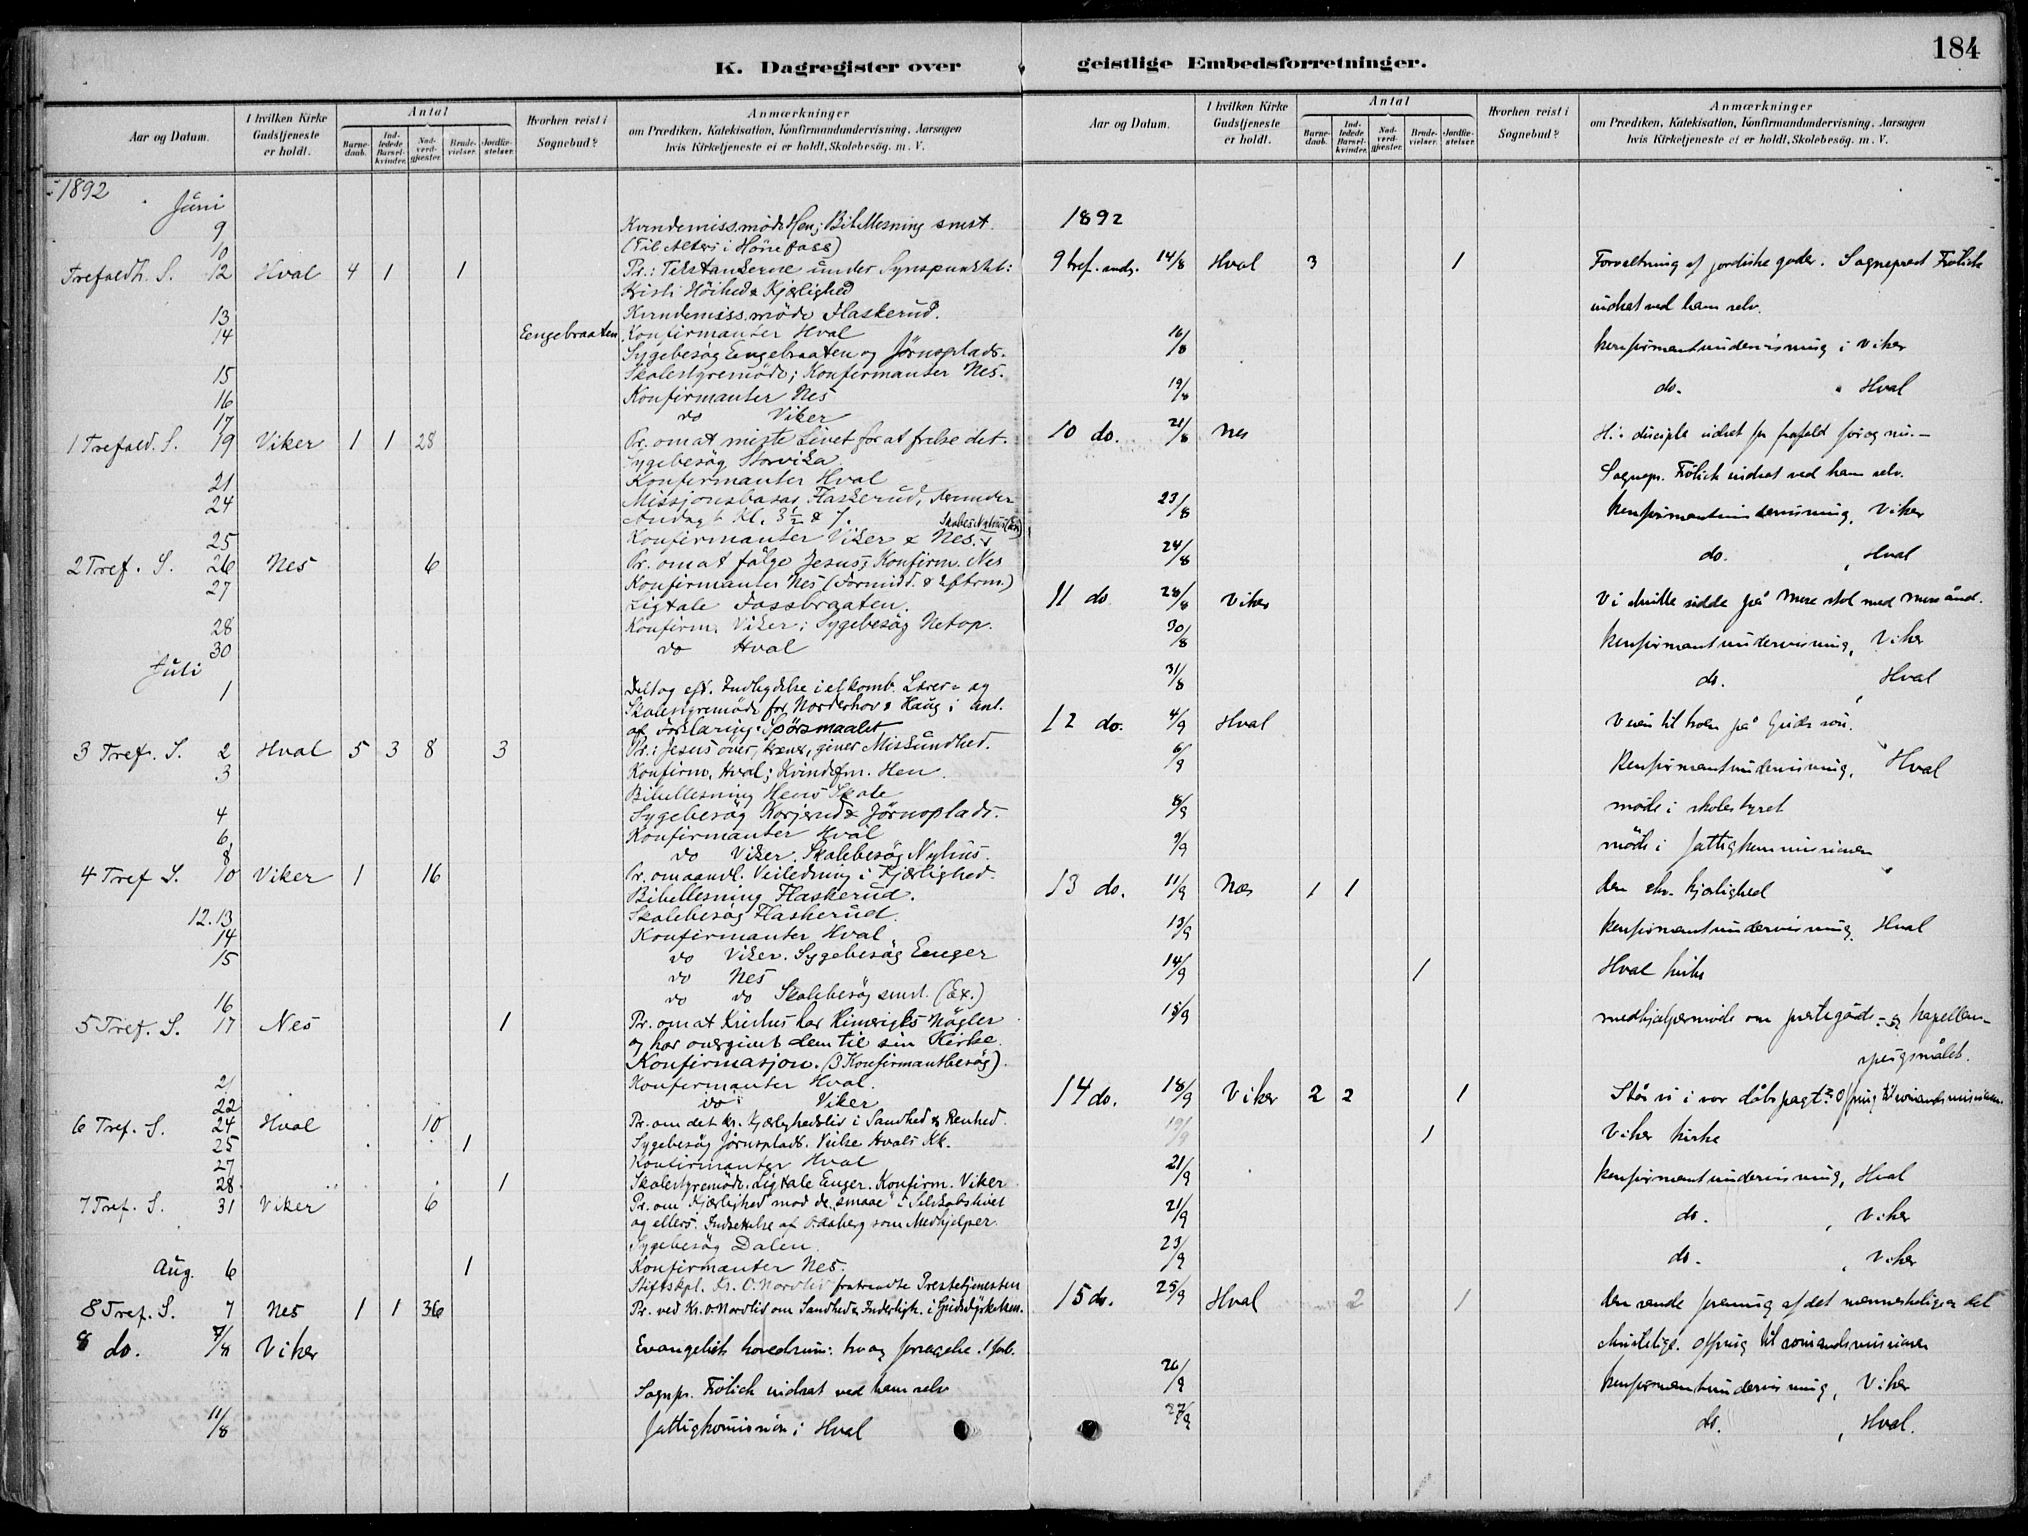 184
K. Dagregister over geistlige Embedsforretninger.
Aar og Datum.
I hvilken Kirke Gudstjeneste er holdt.
Antal
Barnedaab.
Indledede Barselkvinder.
Nadverdgjester.
Brudevielser.
Jordfæstelser.
Hvorhen reist i Sognebud?
Anmærkninger
om Prædiken, Katekisation, Konfirmandundervisning, Aarsagen
hvis Kirketjeneste ei er holdt, Skolebesög. m. V.
1892
Juni
9 Kvindemiss.møde Hen; Bibellesning smst.
10 (Til Alters i Hönefoss)
Trefoldh. S. 12 Hval 4 1 1 Pr.: Textankerne under Synspunktet:
Kristi Höihed & Kjærlighed
13 Kvindemiss.møde Flaskerud.
14 Eengebraaten Konfirmanter Hval
Sygebesøg Eengebraaten og Jørnsplads.
15 Skolestyremöde; Konfirmanter Nes.
16 Konfirmanter Nes
17 do Viker
1 Trefold. S. 19 Viker 1 1 28 Pr. om at miste Livet for at frelse det.
Sygebesøg Storvika
21 Konfirmanter Hval
24 Missjonsbasar Flaskerud, derunder
Andagt Kl. 3½ & 7.
25 Konfirmanter Viker & Nes.
2 Tref. S. 26 Nes 6 Pr. om at følge Jesus; Konfirm. Nes
27 Konfirmanter Nes (Formidd. & Eftrm.)
Ligtale Fossbraaten.
28 Konfirm. Viker; Sygebesøg Netop.
30 do Hval
Juli
1 Deltog eft. Indbydelse i et komb. Lærer- og
Skolestyremöde for Norderhov & Haug i Anl.
af Forklarings Spörsmaalet
3 Tref. S. 2 Hval 5 3 8 3 Pr.: Jesus över, krever, giver Miskundhed.
3 Konfirm. Hval; Kvindefm. Hen.
Bibellesning Hens Skole
4 Sygebesøg Korjerud & Jørnsplads.
6 Konfirmanter Hval
8 do Viker. Skolebesøg Nyhus.
4 Tref S. 10 Viker 1 16 Pr. om aandl. Veiledning i Kjærlighed.
Bibellesning Flaskerud.
12. 13 Skolebesøg Flaskerud.
14 Konfirmanter Hval
15 do Viker. Sygebesøg Eenger
do Nes
16 do do Skolebesøg smst. (Ex.)
5 Tref. S. 17 Nes 1 Pr. om at Kristus har Himerigts Nøgler
og har overgivet dem til sin Kirke.
Konfirmasjon. (3 Konfirmantbesøg).
21 Konfirmanter Hval.
22 do Viker
6 Tref. S. 24 Hval 10 Pr. om det kr. Kjærlighedsliv i Sandhed & Renhed.
25 1 Sygebesøg Jørnsplads. Vielse Hvals Kk.
27 Konfirmanter Hval
28 1 Skolestyremöde. Ligtale Enger. Konfirm. Viker
7 Tref. S. 31 Viker 6 Pr. om Kjærlighed mod de "smaae" i Selskabslivet
og ellers. Indsettelse af O. Aaberg som Medhjelper.
Sygebesøg Dalen.
Aug. 6 1 Konfirmanter Nes.
Stiftskpl. Kr. O. Nordlid fratraadte Prestetjenesten
8 Tref. S. 7 Nes 1 1 36 Pr. ved Kr. O. Nordlid om Sandhed & Inderligh. i Gudsdyrkelsen.
8 do. 7/8 Viker Evangeliets hovedsum: tro og forsagelse. 1 forb.
Sognpr. Frölich indsat ved ham selv
11/8 Fattigkomission i Hval
Aar og Datum.
I hvilken Kirke Gudstjeneste er holdt.
Antal
Barnedaab.
Indledede Barselkvinder.
Nadverdgjester.
Brudevielser.
Jordfæstelser.
Hvorhen reist i Sognebud?
Anmærkninger
om Prædiken, Katekisation, Konfirmandundervisning, Aarsagen
hvis Kirketjeneste ei er holdt, Skolebesög. m. V.
1892
9 tref. snds. 14/8 Hval 3 1 Forvaltning af jordiske goder. Sogneprest Frölich
indsat ved ham selv.
16/8 konfirmantundervisning i Viker
19/8 do. " Hval
10 do. 21/8 Nes H.: disciple udsat for frafald før og nu.—
Sognepr. Frölich indsat ved ham selv.
23/8 konfirmantundervisning, Viker
24/8 do. , Hval
11 do 28/8 Viker Vi skulle sidde på Mose stol med Mose ånd.
30/8 konfirmantundervisning, Viker
31/8 do. , Hval
12 do. 4/9 Hval Veien til troen på Guds sön.
6/9 konfirmantundervisning, Hval
8/9 møde i skolestyret
9/9 møde i Fattigkommissionen
13 do. 11/9 Nes 1 1 den chr. kjærlighed
13/9 konfirmantundervisning, Hval
14/9 1 Hval kirke
15/9 medhjælpermøde om prestegårds- og kapellan-
spørgsmålet.
14 do. 18/9 Viker 2 2 1 Står vi i vor dåbspagt? Ofring til sømandsmissionen.
19/9 1 Viker kirke
21/9 konfirmantundervisning, Hval
21/9 do. , Viker
23/9 do. , Viker
15 do. 25/9 Hval 2 1 den sande forening af det menneskelige og det
kristelige. Ofring til sømandsmissionen
26/9 konfirmantundervisning, Viker
27/9 do. , Hval.